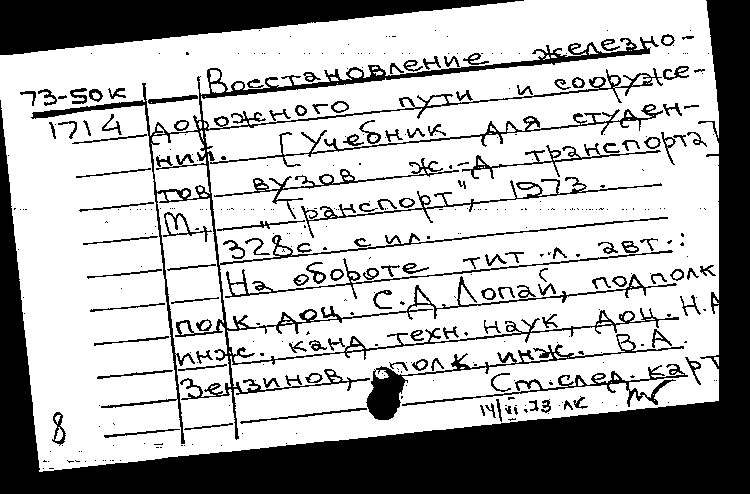 73-50к
1714
Восстановление железно-
дорожного пути и сооруже-
ний. [Учебник для студен-
тов вузов ж.-д. транспорта]
М., „Транспорт", 1973.
328с. с ил.
На обороте тит. л. авт.:
полк., доц. С.Д. Лопай, подполк
инж., канд. техн. наук, доц. Н.А
Зензинов, полк., инж. В.А.
Ст. след. карт
14/VI.73 лк
8